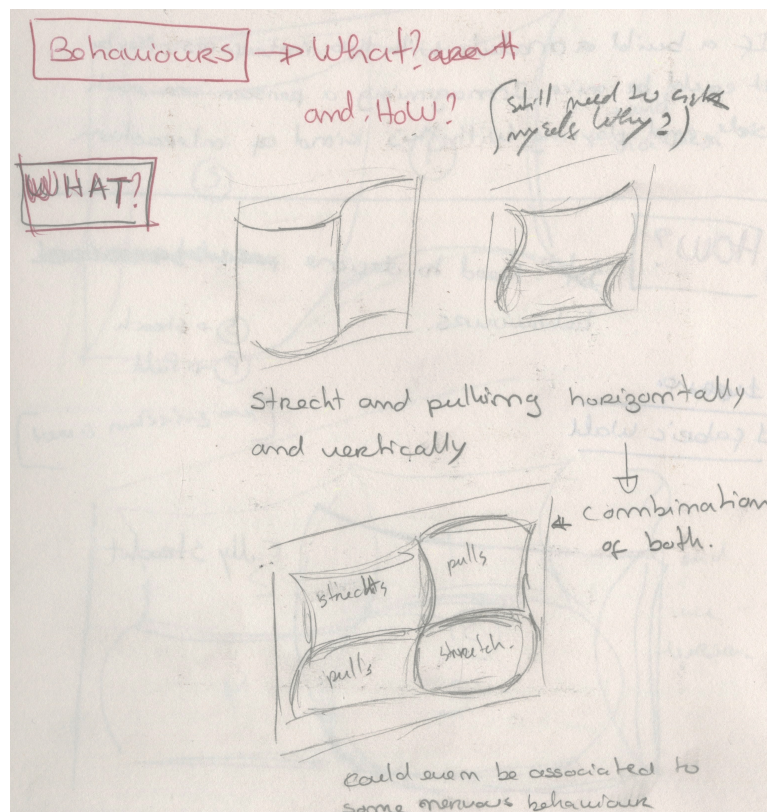 Behaviours → What?
and How?
(still need to ask
myself Why?)
WHAT?
Strecht and pulling horizontally
and vertically
* combination
of both.
strechts
pulls
pulls
stretch.
could even be associated to
some nervous behaviour